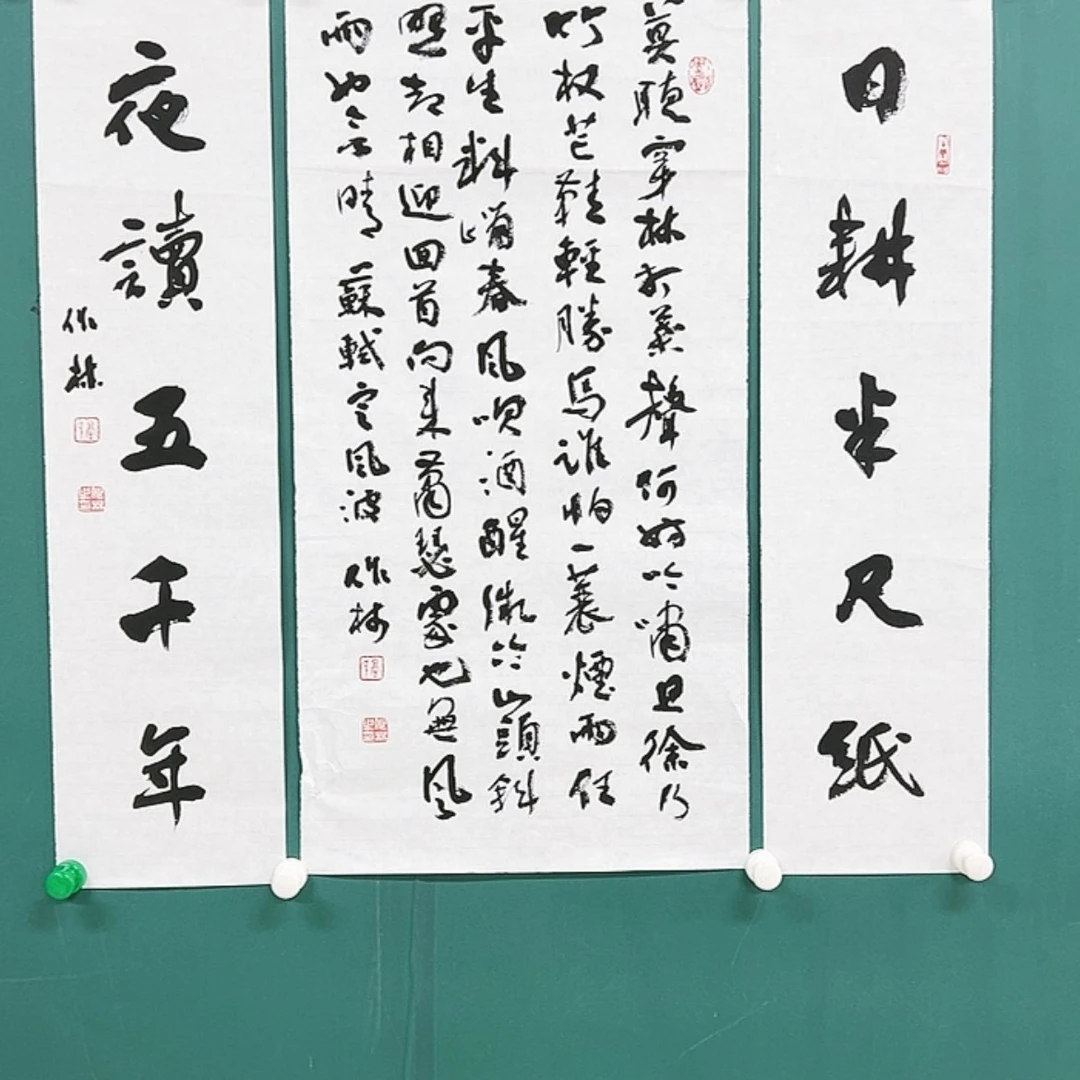 日耕半尺紙
莫聽穿林打葉聲何妨吟嘯且徐行
竹杖芒鞋輕勝馬誰怕一蓑煙雨任
平生料峭春風吹酒醒微冷山頭斜
照却相迎回首向來蕭瑟處也無風
雨也無晴蘇軾定風波 作林
夜讀五千年
作林